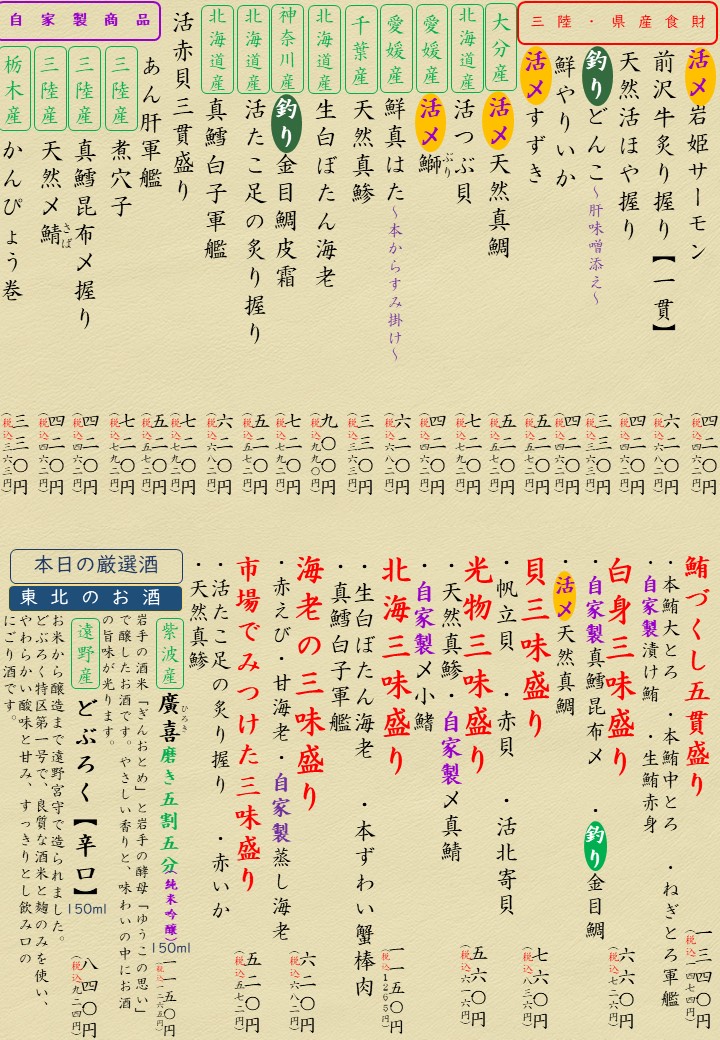 三陸・県産食財
活〆岩姫サーモン
四二〇円
(税込四六二円)
前沢牛炙り握り【一貫】
六二〇円
(税込六八二円)
天然活ほや握り
四二〇円
(税込四六二円)
釣りどんこ~肝味噌添え~
三三〇円
(税込三六三円)
鮮やりいか
四二〇円
(税込四六二円)
活〆すずき
五二〇円
(税込五七二円)
大分産
活〆天然真鯛
五二〇円
(税込五七二円)
北海道産
活つぶ貝
七二〇円
(税込七九二円)
愛媛産
活〆鰤
ぶり
四二〇円
(税込四六二円)
愛媛産
鮮真はた~本からすみ掛け~
六二〇円
(税込六八二円)
千葉産
天然真鯵
三三〇円
(税込三六三円)
北海道産
生白ぼたん海老
九〇〇円
(税込九九〇円)
神奈川産
釣り金目鯛皮霜
七二〇円
(税込七九二円)
北海道産
活たこ足の炙り握り
五二〇円
(税込五七二円)
北海道産
真鱈白子軍艦
六二〇円
(税込六八二円)
活赤貝三貫盛り
七二〇円
(税込七九二円)
自家製商品
あん肝軍艦
五二〇円
(税込五七二円)
三陸産
煮穴子
七二〇円
(税込七九二円)
三陸産
真鱈昆布〆握り
四二〇円
(税込四六二円)
三陸産
天然〆鯖
さば
四二〇円
(税込四六二円)
栃木産
かんぴょう巻
三三〇円
(税込三六三円)
鮪づくし五貫盛り
・本鮪大とろ ・本鮪中とろ ・ねぎとろ軍艦
・自家製漬け鮪 ・生鮪赤身
一三四〇円
(税込一四七四円)
白身三味盛り
・自家製真鱈昆布〆 ・釣り金目鯛
・活〆天然真鯛
六六〇円
(税込七二六円)
貝三味盛り
・帆立貝 ・赤貝 ・活北寄貝
七六〇円
(税込八三六円)
光物三味盛り
・天然真鯵 ・自家製〆真鯖
・自家製〆小鰭
五六〇円
(税込六一六円)
北海三味盛り
・生白ぼたん海老 ・本ずわい蟹棒肉
・真鱈白子軍艦
一一五〇円
(税込1265円)
海老の三味盛り
・赤えび・甘海老・自家製蒸し海老
六二〇円
(税込六八二円)
市場でみつけた三味盛り
・活たこ足の炙り握り ・赤いか
・天然真鯵
五二〇円
(税込五七二円)
本日の厳選酒
東北のお酒
紫波産
廣喜磨き五割五分(純米吟醸)
ひろき
150ml
一一五〇円
(税込一二六五円)
岩手の酒米「ぎんおとめ」と岩手の酵母「ゆうこの思い」
で醸したお酒です。やさしい香りと、味わいの中にお酒
の旨味が光ります。
遠野産
どぶろく【辛口】
150ml
八四〇円
(税込九二四円)
お米から醸造まで遠野宮守で造られました。
どぶろく特区第一号で、良質な酒米と麹のみを使い、
やわらかい酸味と甘み、すっきりとし飲み口の
にごり酒です。